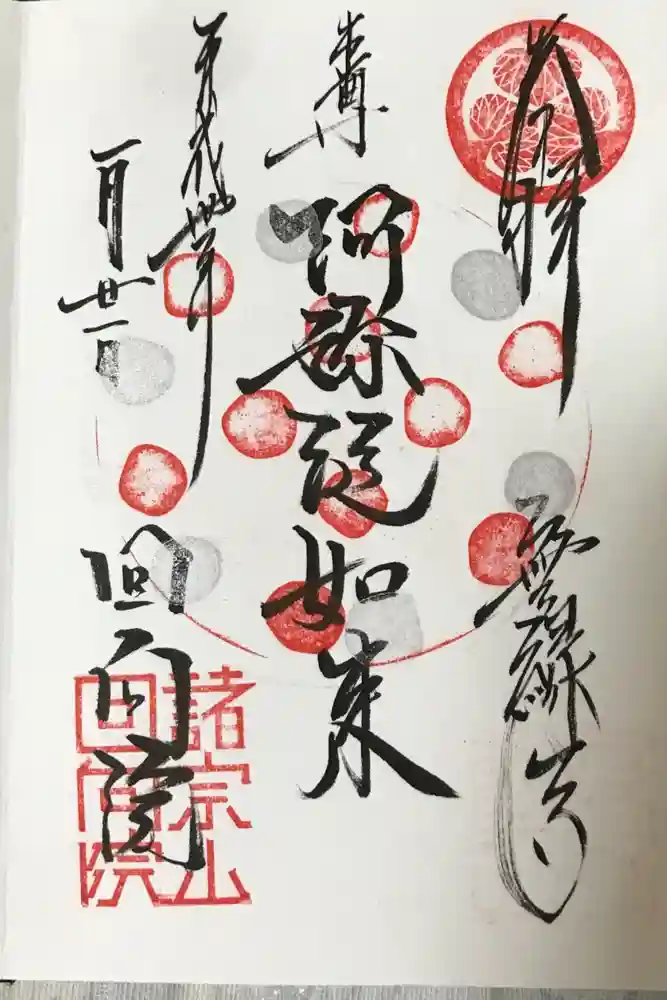 奉拝
無縁寺
本尊
阿弥陀如来
平成卅年
一月廿一日
回向院
諸宗山
回向院